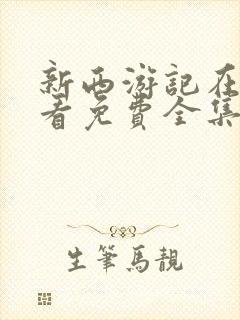 新西游記在
看免費全集
生筆馬靚